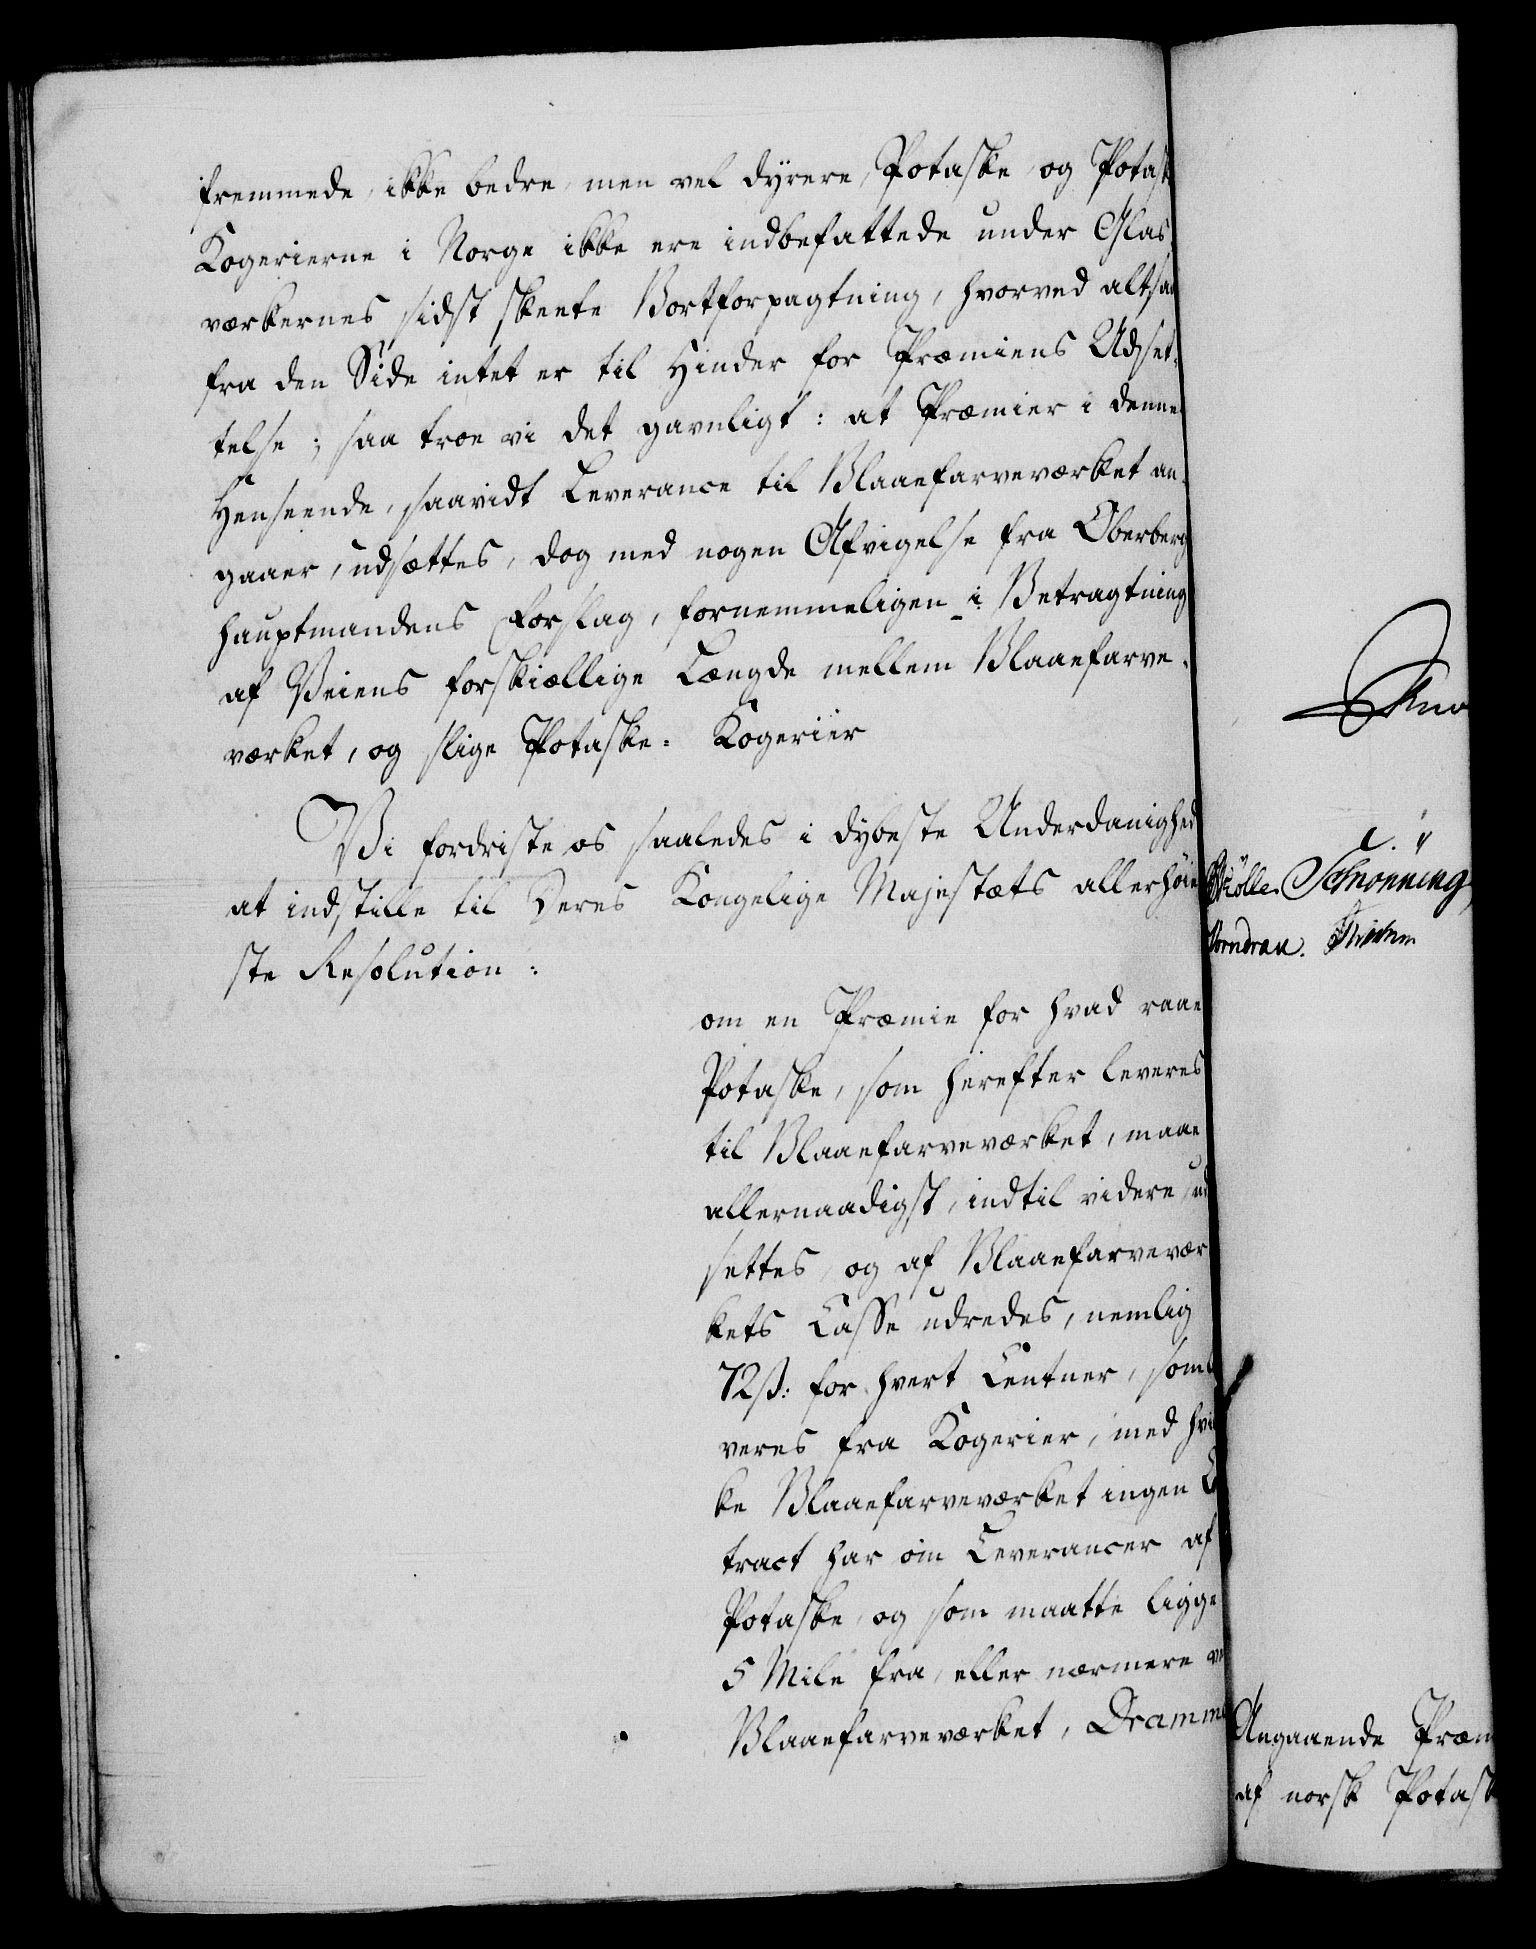 fremmede, ikke bedre, men vel dyrere, Potaske, og Potask
Kogerierne i Norge ikke ere indbefattede under Glas
værkernes sidst skeete Bortforpagtning, hvorved altsaa
fra den Side intet er til Hinder for Præmiens Udset-
telse; saa troe vi det gavnligt: at Præmier i denne
Henseende, saavidt Leverance til Blaaefarveværket an-
gaaer, udsættes, dog med nogen Afvigelse fra Oberberg
hauptmandens Forslag, fornemmeligen i Betragtning
af Veiens forskiællige Længde mellem Blaaefarve-
værket, og slige Potaske-Kogerier
Vi fordriste os saaledes i dybeste Underdanighed
at indstille til Deres Kongelige Majestæts allerhöie
ste Resolution:
om en Præmie for hvad raae
Potaske, som herefter leveres
til Blaaefarveværket, maae
allernaadigst, indtil videre, ud
settes, og af Blaaefarvevær
kets Casse udredes, nemlig
72 ß: for hvert Centner, som
veres fra Kogerier, med hvi
ke Blaaefarveværket ingen
tract har om Leverancer af
Potaske, og som maatte ligge
5 Mile fra, eller nærmere
Blaaefarveværket, Dramme
Schönning
Angaaende Præm
af norsk Potask